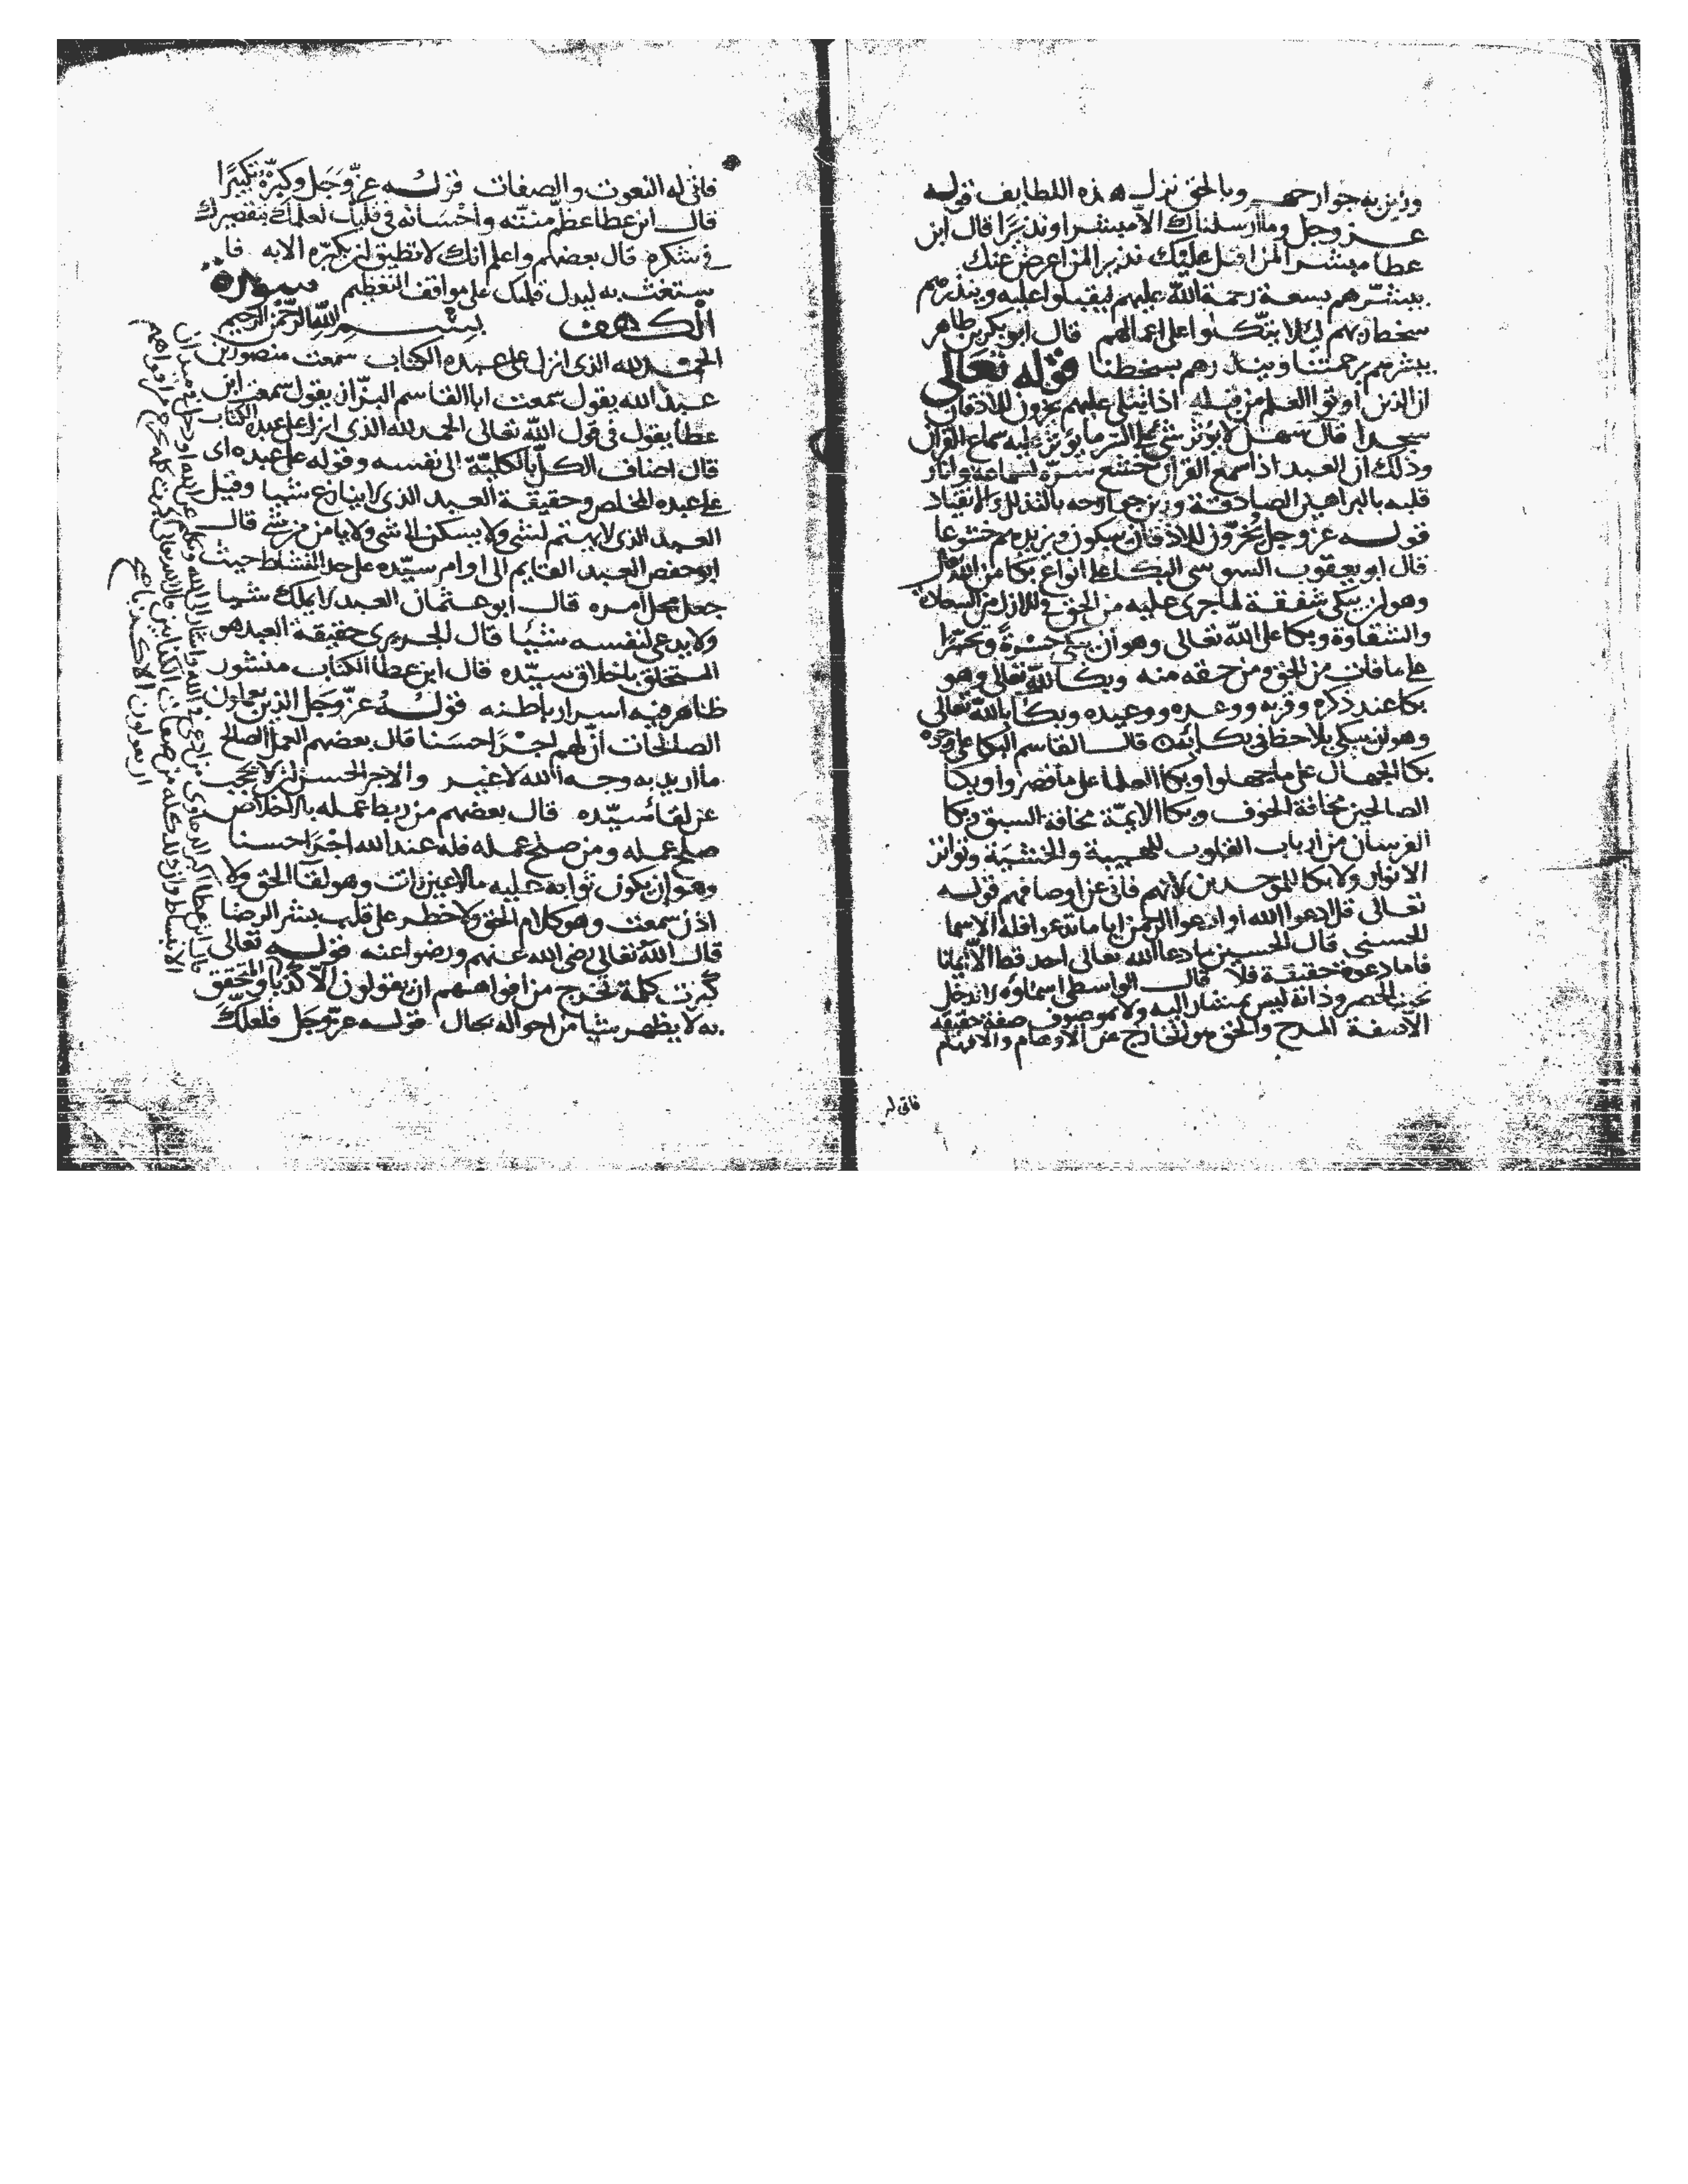 وزين به جوارحهم وبالحق نزل هذه اللطايف قوله
عز وجل وما ارسلناك الا مبشرا ونذيرا قال ابن
عطا مبشرا لمن اقبل عليك نذيرا لمن اعرض عنك
يبشرهم بسعة رحمة الله عليهم ليقبلوا عليه وينذرهم
سخطا ربهم لئلا يتكلوا على اعمالهم قال ابو بكر بن طاهر
يبشرهم برحمتنا وينذرهم بسخطنا قوله تعالى
ان الذين اوتوا العلم من قبله اذا يتلى عليهم يخرون للاذقان
سجدا قال سهل لا يؤثر شئ على السر ما يؤثر عليه سماع القران
وذلك ان العبد اذا سمع القران خشع سره لسماعه وانار
قلبه بالبراهين الصادقة وزين جوارحه بالتذلل والانقياد
قوله عز وجل يخرون للاذقان يبكون ويزيدهم خشوعا
قال ابو يعقوب السوسى البكا على انواع بكا من الله
وهو ان يبكى شفقة لما جرى عليه من الحق فى الازل من السعادة
والشقاوة وبكا على الله تعالى وهو ان يبكى حسرة وتحسرا
على ما فات من الحق ومن حقه منه وبكا لله تعالى وهو
بكا عند ذكره وقربه ووعده ووعيده وبكا بالله تعالى
وهو ان يبكى بلا حظ فى بكائه قال القاسم البكا على وجوه
بكا الجهال على ما جهلوا وبكا العلما على ما قصروا وبكا
الصالحين مخافة الخوف وبكا الايمة مخافة السبق وبكا
الفرسان من ارباب القلوب للهيبة والخشية وتواتر
الانوار ولا بكا للموحدين لانهم فانى عن اوصافهم قوله
تعالى قل ادعوا الله او ادعوا الرحمن ايا ما تدعوا فله الاسما
الحسنى قال الحسين ما دعا الله تعالى احد قط الا ايمانا
فاما دعوة حقيقة فلا قال الواسطى اسماؤه لا تدخل
تحت الحصر وذاته ليس بمشار اليه ولا موصوف صفة حقيقة
الا صفة المدح والحق هو الخارج عن الاوهام والافهام
فانى له
فانى له النعوت والصفات قوله عز وجل وكبره تكبيرا
قال ابن عطا عظم منته واحسانه فى قلبك لعلمك بتقصيرك
فى شكره قال بعضهم واعلم انك لا تطيق ان تكبره الا به فا
ستغث به ليدل قلبك على مواقف التعظيم سورة
الكهف بسم الله الرحمن الرحيم
الحمد لله الذى انزل على عبده الكتاب سمعت منصور بن
عبد الله يقول سمعت ابا القاسم البزاز يقول سمعت ابن
عطا يقول فى قول الله تعالى الحمد لله الذى انزل على عبده الكتاب
قال اضاف الكل بالكلية الى نفسه وقوله على عبده اى
على عبده المخلص وحقيقة العبد الذى لا ينازع شيا وقيل
العبد الذى لا يهتم لشى ولا يسكن الى شى ولا يامن من شى قال
ابو حفص العبد القايم الى اوامر سيده على حد النشاط حيث
جعل محل امره قال ابو عثمان العبد لا يملك شيا
ولا يدعى لنفسه شيئا قال الجريرى حقيقة العبد هو
المتخلق باخلاق سيده قال ابن عطا الكتاب منشور
ظاهر فيه اسرار باطنه قوله عز وجل الذين يعملون
الصالحات ان لهم اجرا حسنا قال بعضهم العمل الصالح
ما اريد به وجه الله لا غير والاجر الحسن لمن لا يحجب
عن لقاء سيده قال بعضهم من ربط عمله بالاخلاص
صلح عمله ومن صلح عمله فله عند الله اجرا حسنا
وهو ان يكون ثوابه عليه ما لا عين رات وهو لقا الحق ولا
اذن سمعت وهو كلام الحق ولا خطر على قلب بشر الرضا
قال الله تعالى رضى الله عنهم ورضوا عنه قوله تعالى
كبرت كلمة تخرج من افواههم ان يقولون الا كذبا والمحقق
به لا يظهر شيا من احواله بحال قوله عز وجل فلعلك
قال ابن عطا اكبر الدعاوى من ادعى فى الله واشار الى الله وتكلم عن الله او دخل فى ميدان
الانبساط وان ذلك كله من صفات الكذابين قال الله تعالى كبرت كلمة تخرج من افواههم
ان يقولون الا كذبا صح